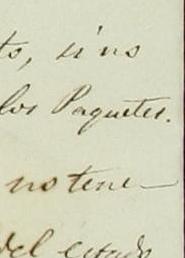 to, si no
los Paquetes.
no tene-
del estado